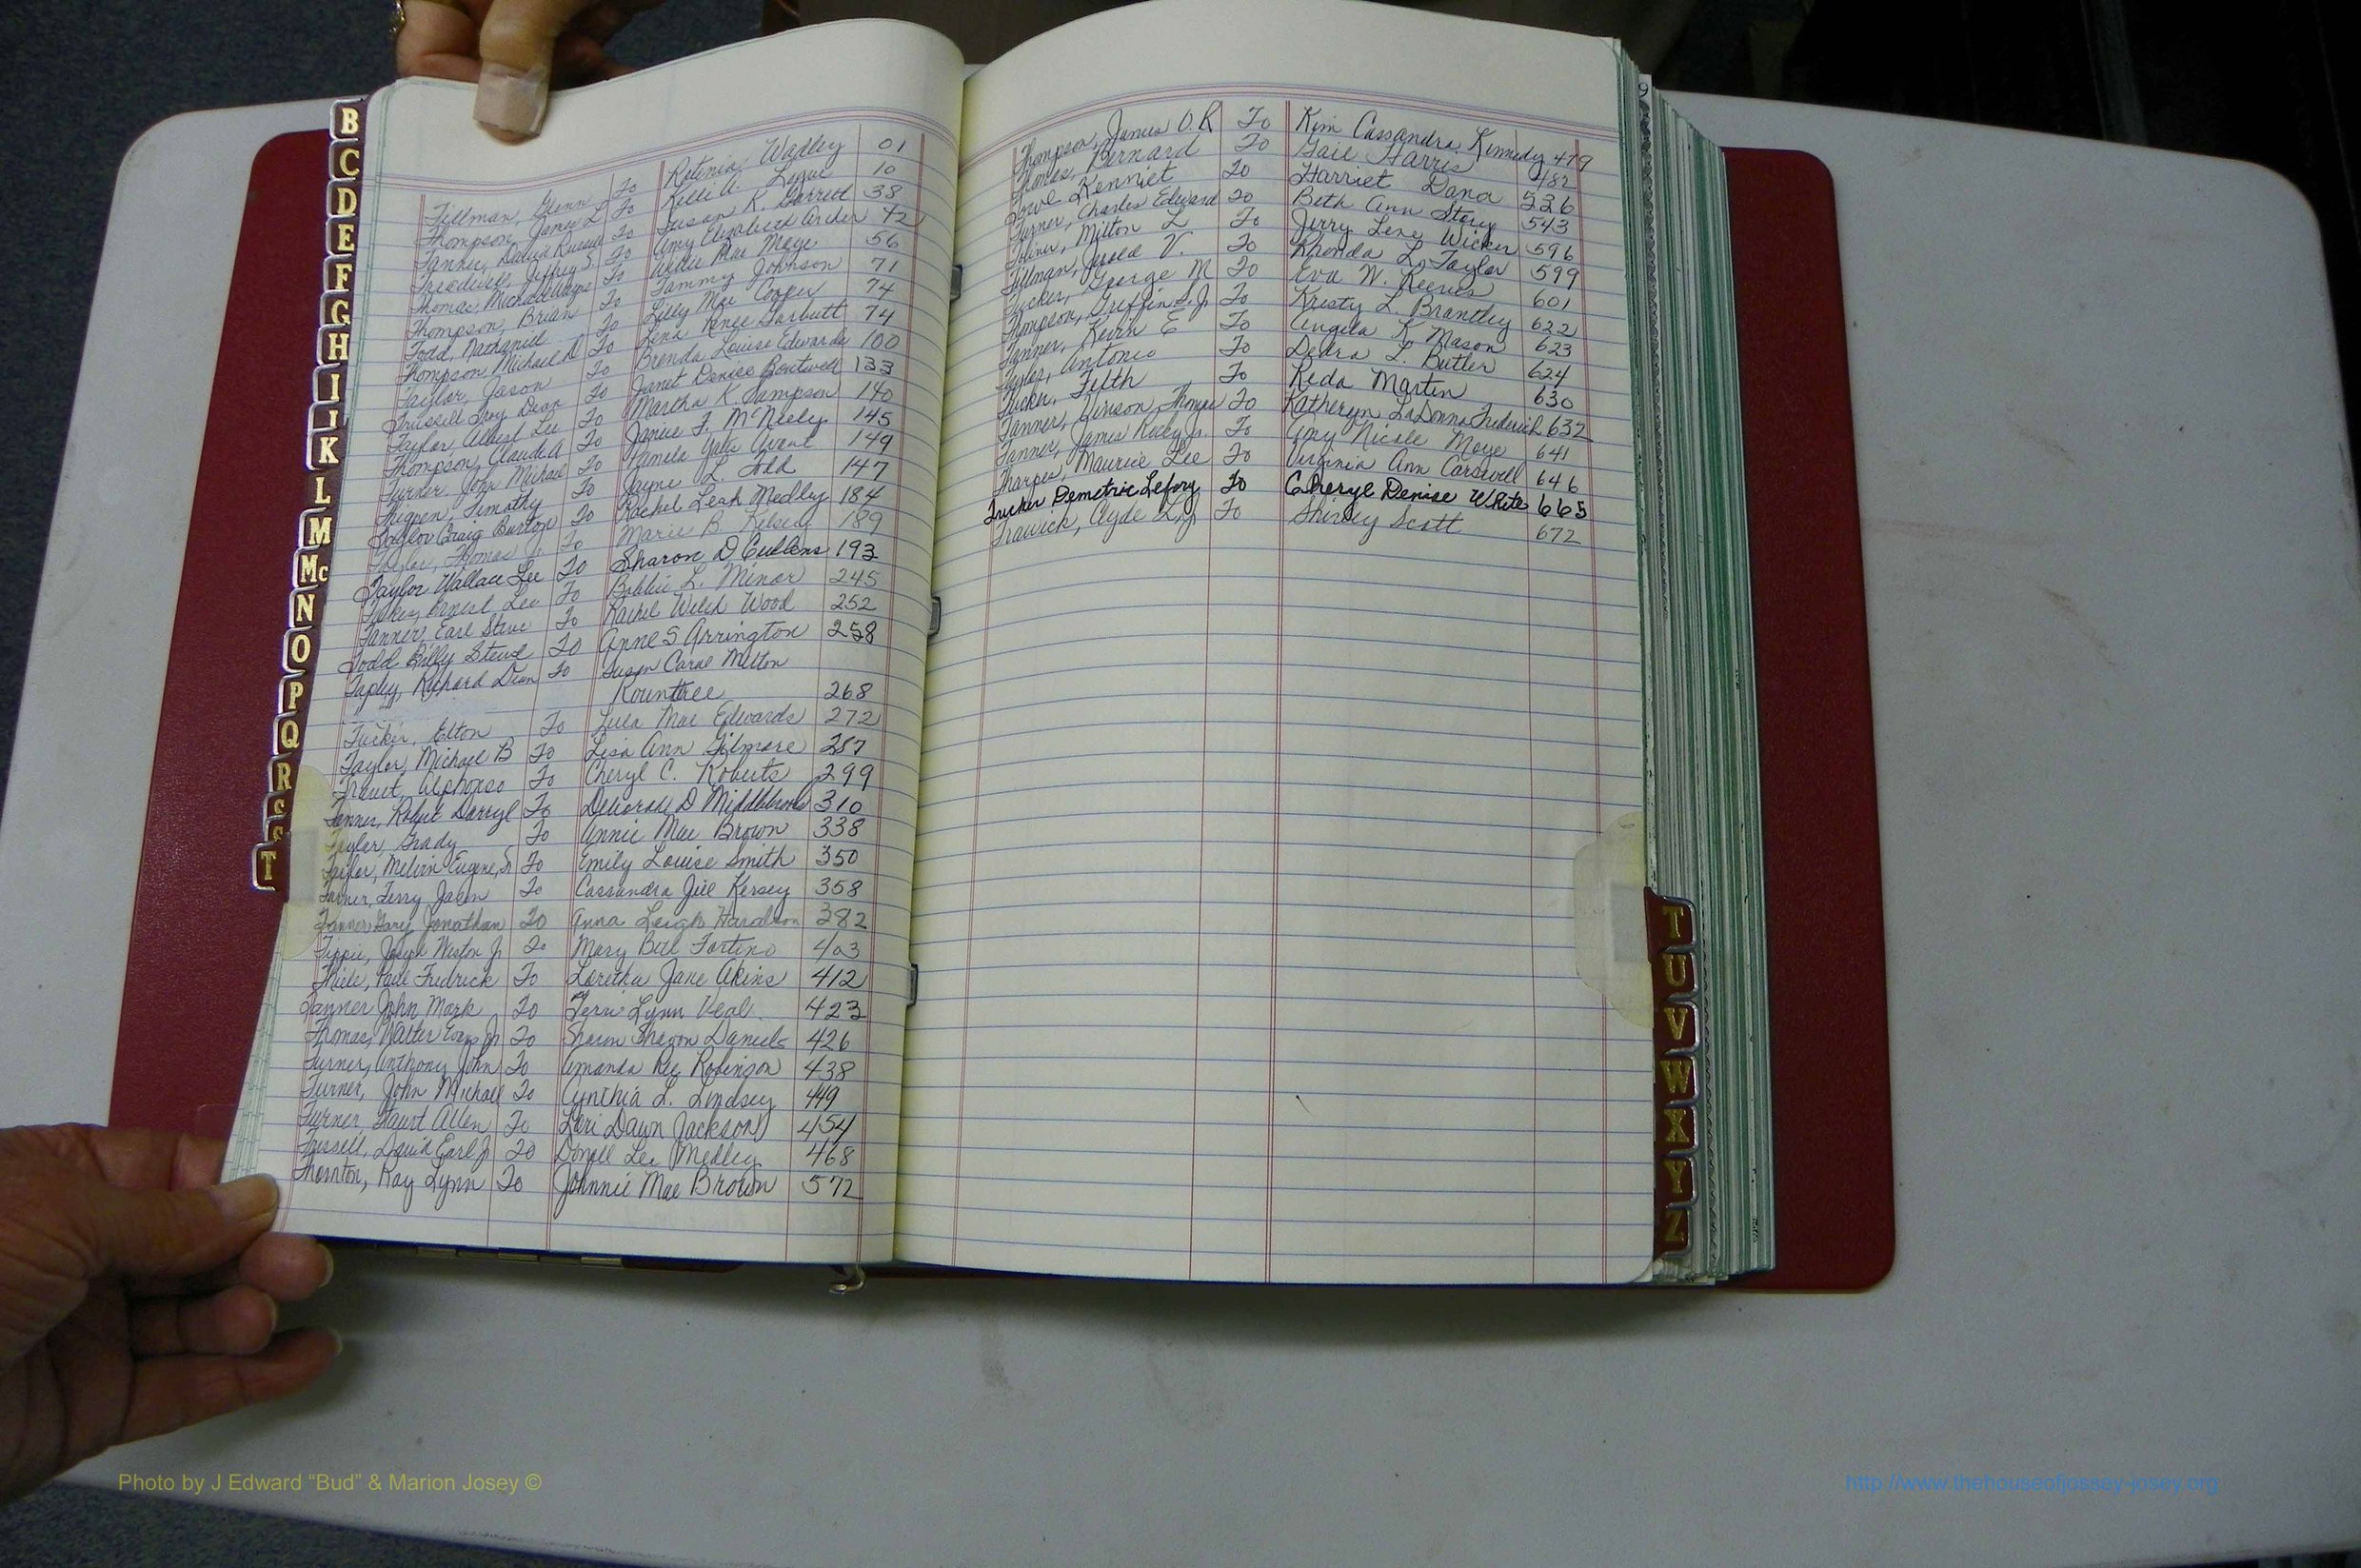 B
C
D
E
F
G
H
I
K
L
M
Mc
N
O
P
Q
R
S
T
Tillman, Glenn To Wadley 01
Thompson, James L To Kelli A. Logue 10
Tanner, David Russell To Susan K. Garrett 38
Treadwell, Jeffrey S. To Amy Elizabeth Archer 42
Thomas, Michael To Willie Mae Moye 56
Thompson, Brian To Tammy Johnson 71
Todd, Nathaniel To Lilly Mae Cooper 74
Thompson Michael D To Lena Renee Garbutt 74
Taylor, Jason To Brenda Louise Edwards 100
Trussell Troy Dean To Janet Denise Boutwell 133
Taylor, Albert Lee To Martha K. Sampson 140
Thompson, Claude A To Janice F. McNeely 145
Turner, John Michael To Pamela Avant 149
Thigpen, Timothy To Jayne L. Todd 147
Taylor Craig Burton To Rachel Leah Medley 184
Taylor, Thomas To Marie B. Kelsey 189
Taylor Wallace Lee To Sharon D Cullens 193
Ernest Lee To Bobbie L. Minor 245
Tanner, Earl Steve To Rachel Welch Wood 252
Todd Billy Steve To Anne S Arrington 258
Tapley, Richard Dean To Susan Carol Melton
Rountree 268
Tucker, Elton To Lula Mae Edwards 272
Taylor, Michael B To Lisa Ann Gilmore 287
Alphonso To Cheryl C. Roberts 299
Tanner, Robert Darryl To Deborah D Middlebrooks 310
Taylor, Grady To Annie Mae Brown 338
Taylor, Melvin Eugene, Sr To Emily Louise Smith 350
Turner, Terry Jason To Cassandra Jill Kersey 358
Tanner Gary Jonathan To Anna Leigh 382
Tippie, Joseph Weston Jr To Mary Bell Fortino 403
Thiele, Paul Fredrick To Loretha Jane Akins 412
Tanner John Mark To Terri Lynn Veal 423
Thomas, Walter Jr To Sharon Daniels 426
Turner, Anthony John To Amanda Robinson 438
Turner, John Michael To Cynthia L. Lindsey 449
Turner, Allen To Lori Dawn Jackson 454
Trussell, David Earl Jr To Donell Lee Medley 468
Thornton, Ray Lynn To Johnnie Mae Brown 572
Thompson, James O.R To Kim Cassandra Kennedy 479
Thomas, Bernard To Gail Harris 482
Kennet To Harriet Dana 536
Turner, Charles Edward To Beth Ann Story 543
Milton L To Jerry Lene Wicker 596
Tillman, Jerold V. To Rhonda L. Taylor 599
Tucker, George M To Eva W. Reeves 601
Thompson, Griffin S. Jr To Kristy L. Brantley 622
Tanner, Kevin E To Angela K Mason 623
Taylor, Antonio To Dedra L. Butler 624
Tucker, Filth To Reda Martin 630
Tanner, Vinson Thomas To Katheryn LaDonna Frederick 632
Tanner, James Ricky Jr. To Amy Nicole Moye 641
Tharpe, Maurice Lee To Virginia Ann Carswell 646
Tucker Demetric Leforg To Cheryl Denise White 665
Trawick, Clyde L Jr To Shirley Scott 672
T
U
V
W
X
Y
Z
Photo by J Edward “Bud” & Marion Josey ©
http://www.thehouseofjossey-josey.org